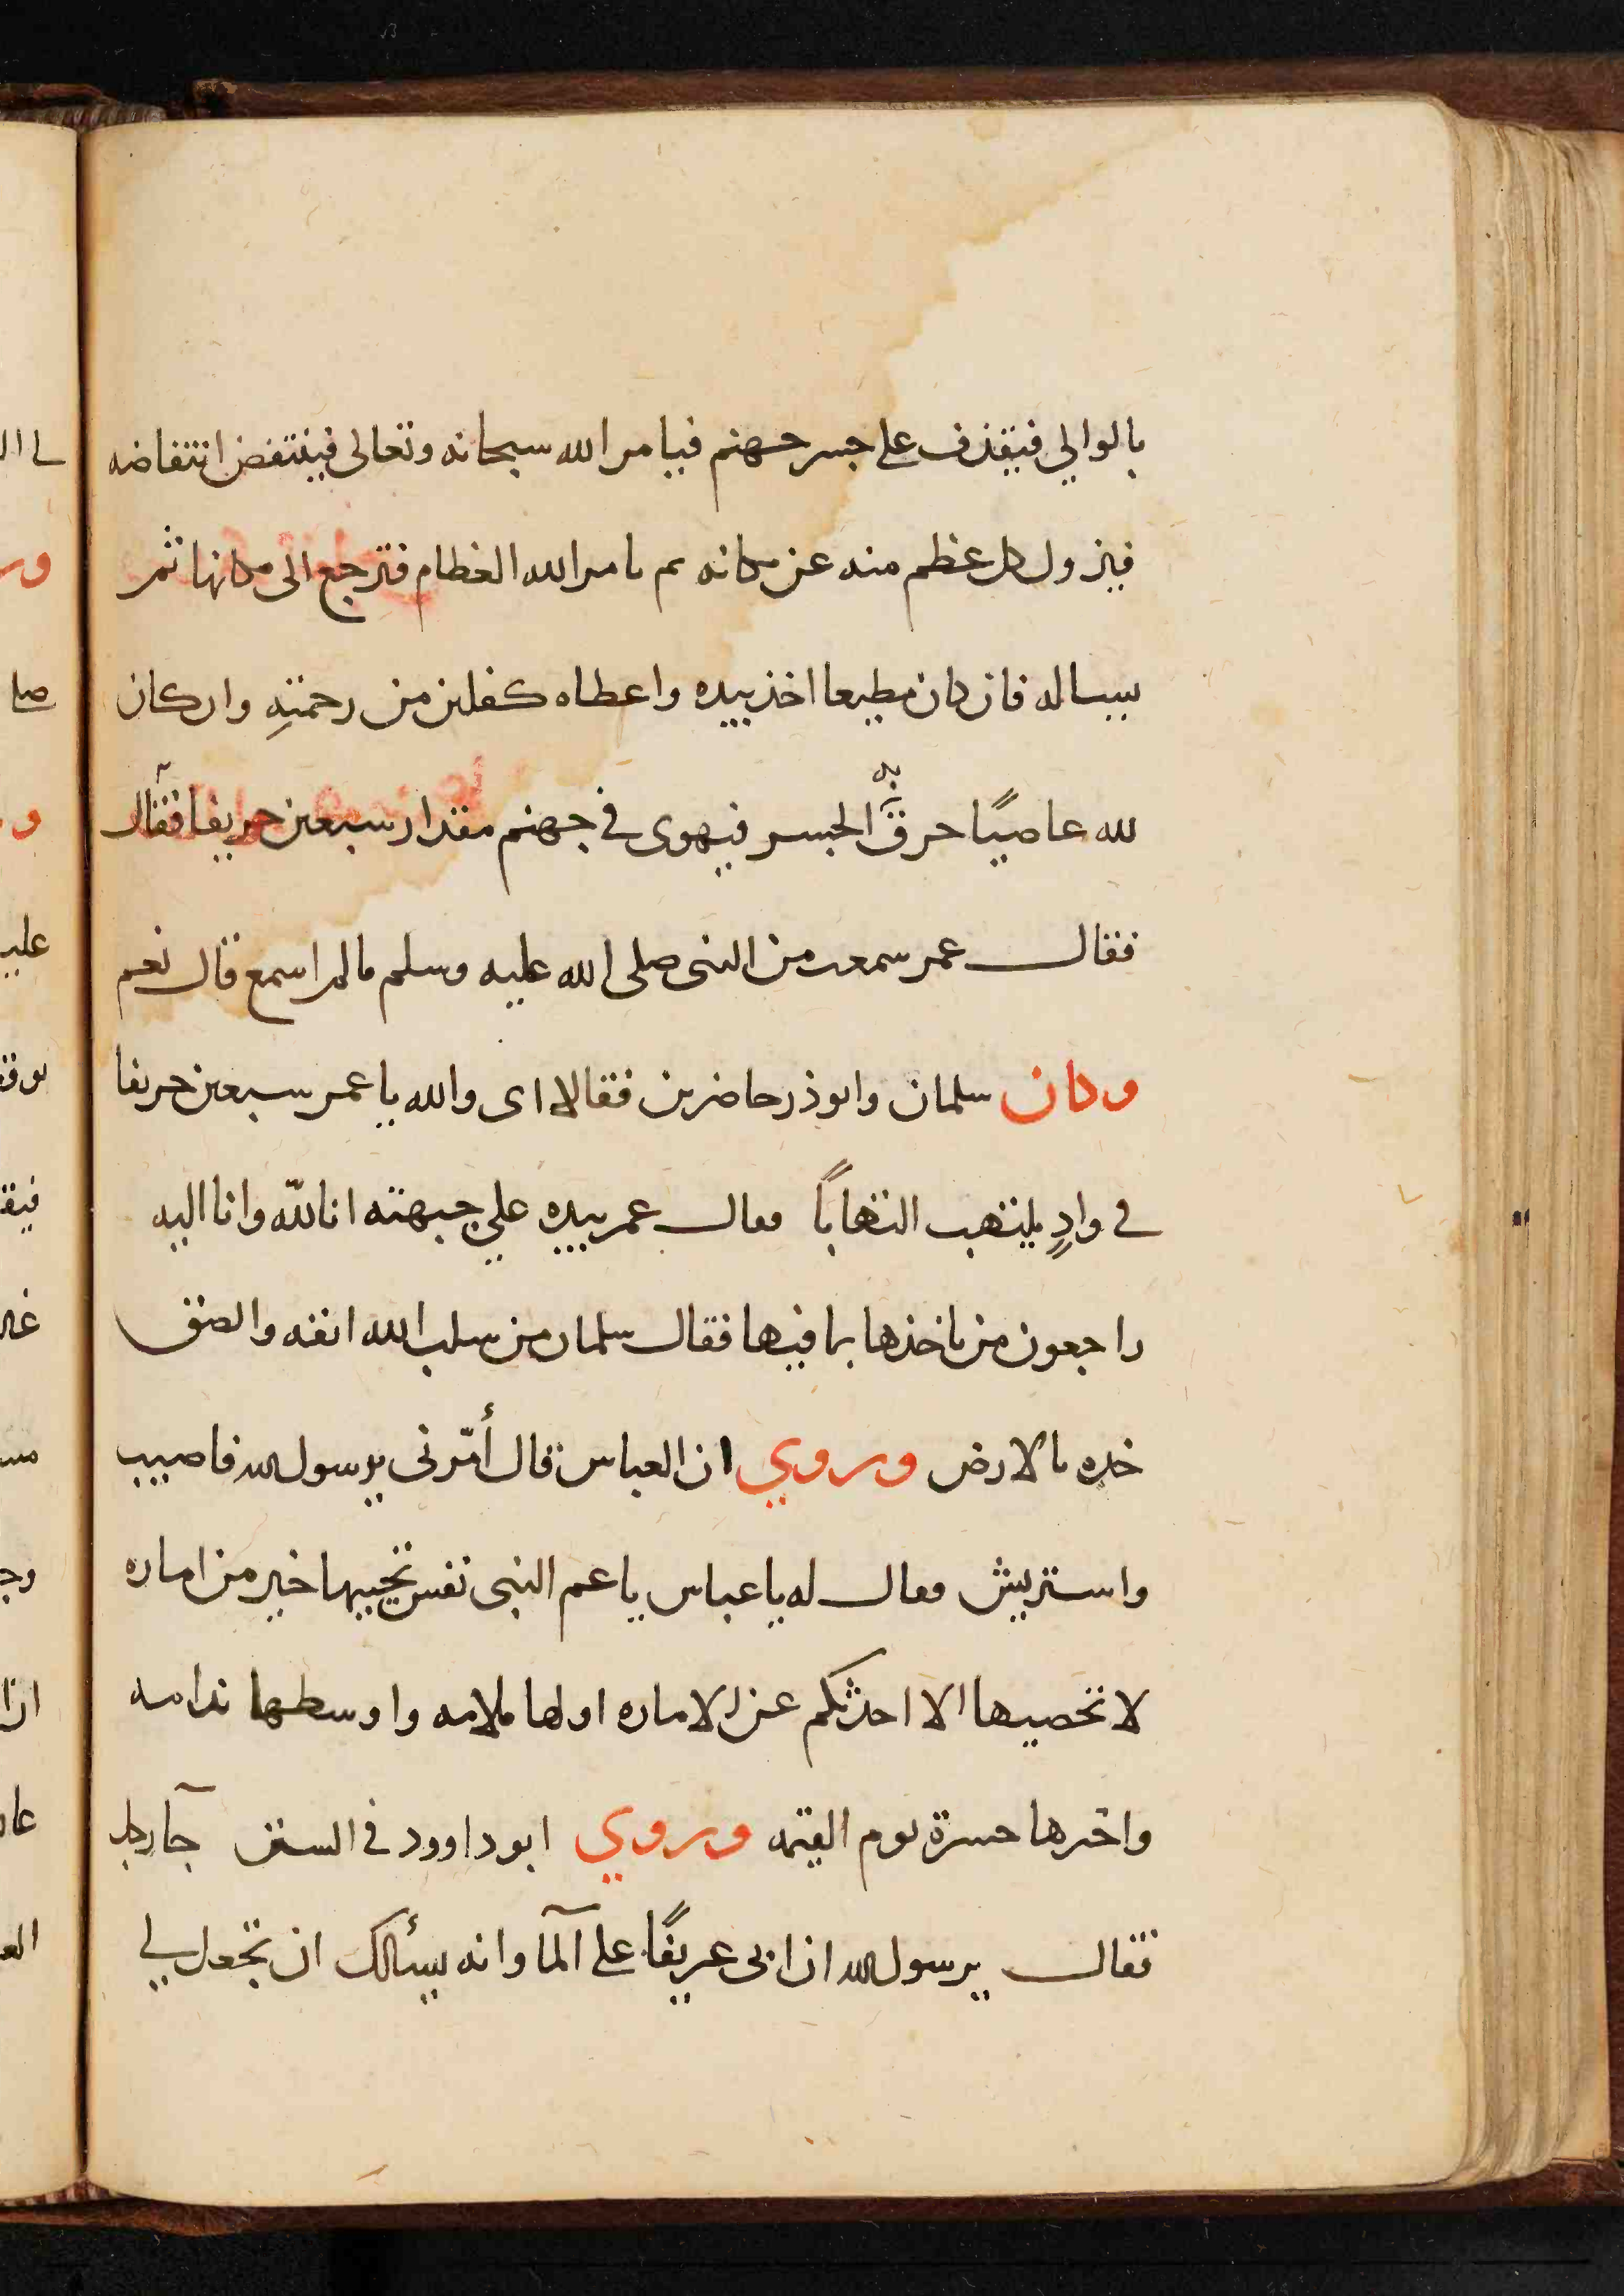 بالوالي فيقذف على جسر جهنم فيامر الله سبحانه وتعالى فينتفض انتفاضه
فيزول كل عظم منه عن مكانه ثم يامر الله العظام فترجع الى مكانها ثم
يساله فان كان مطيعا اخذ بيده واعطاه كفلين من رحمتهِ وان كان
لله عاصيًا خرق به الجسر فيهوى في جهنم مقدار سبعين خريفا فقال
فقال عمر سمعت من النبى صلى الله عليه وسلم مالم اسمع قال نعم
وكان سلمان وابوذر حاضرين فقالا اى والله يا عمر سبعين خريفا
في وادٍ يلتهب التهابًا فقال عمر بيده على جبهته انا لله وانا اليه
راجعون من ياخذها بما فيها فقال سلمان من سلب الله انفه والصق
خده بالارض وروي ان العباس قال أمّرنى يرسول الله فاصيب
واستريش فقال له يا عباس يا عم النبى نفس تحييها خير من اماره
لا تحصيها الا احدثكم عن الاماره اولها ملامه واوسطها ندامه
واخرها حسرة يوم القيمه وروي ابو داوود في السنن جآ رجل
فقال يرسول الله ان ابى عريفًا على المآ وانه يسألك ان تجعل لي